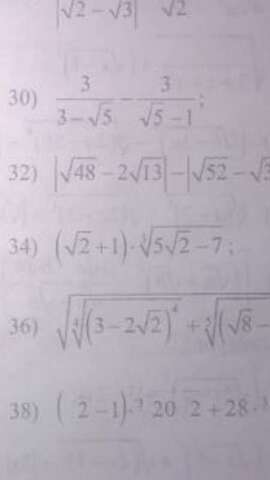 |√2 – √3| √2
30) 3/(3 – √5) – 3/(√5 – 1);
32) |√48 – 2√13| – |√52 – √3
34) (√2 + 1) · ∛(5√2 – 7);
36) √(∜(3 – 2√2)⁴ + ⁵√(√8 –
38) ( 2 – 1) · ³ 20 2 + 28 ·